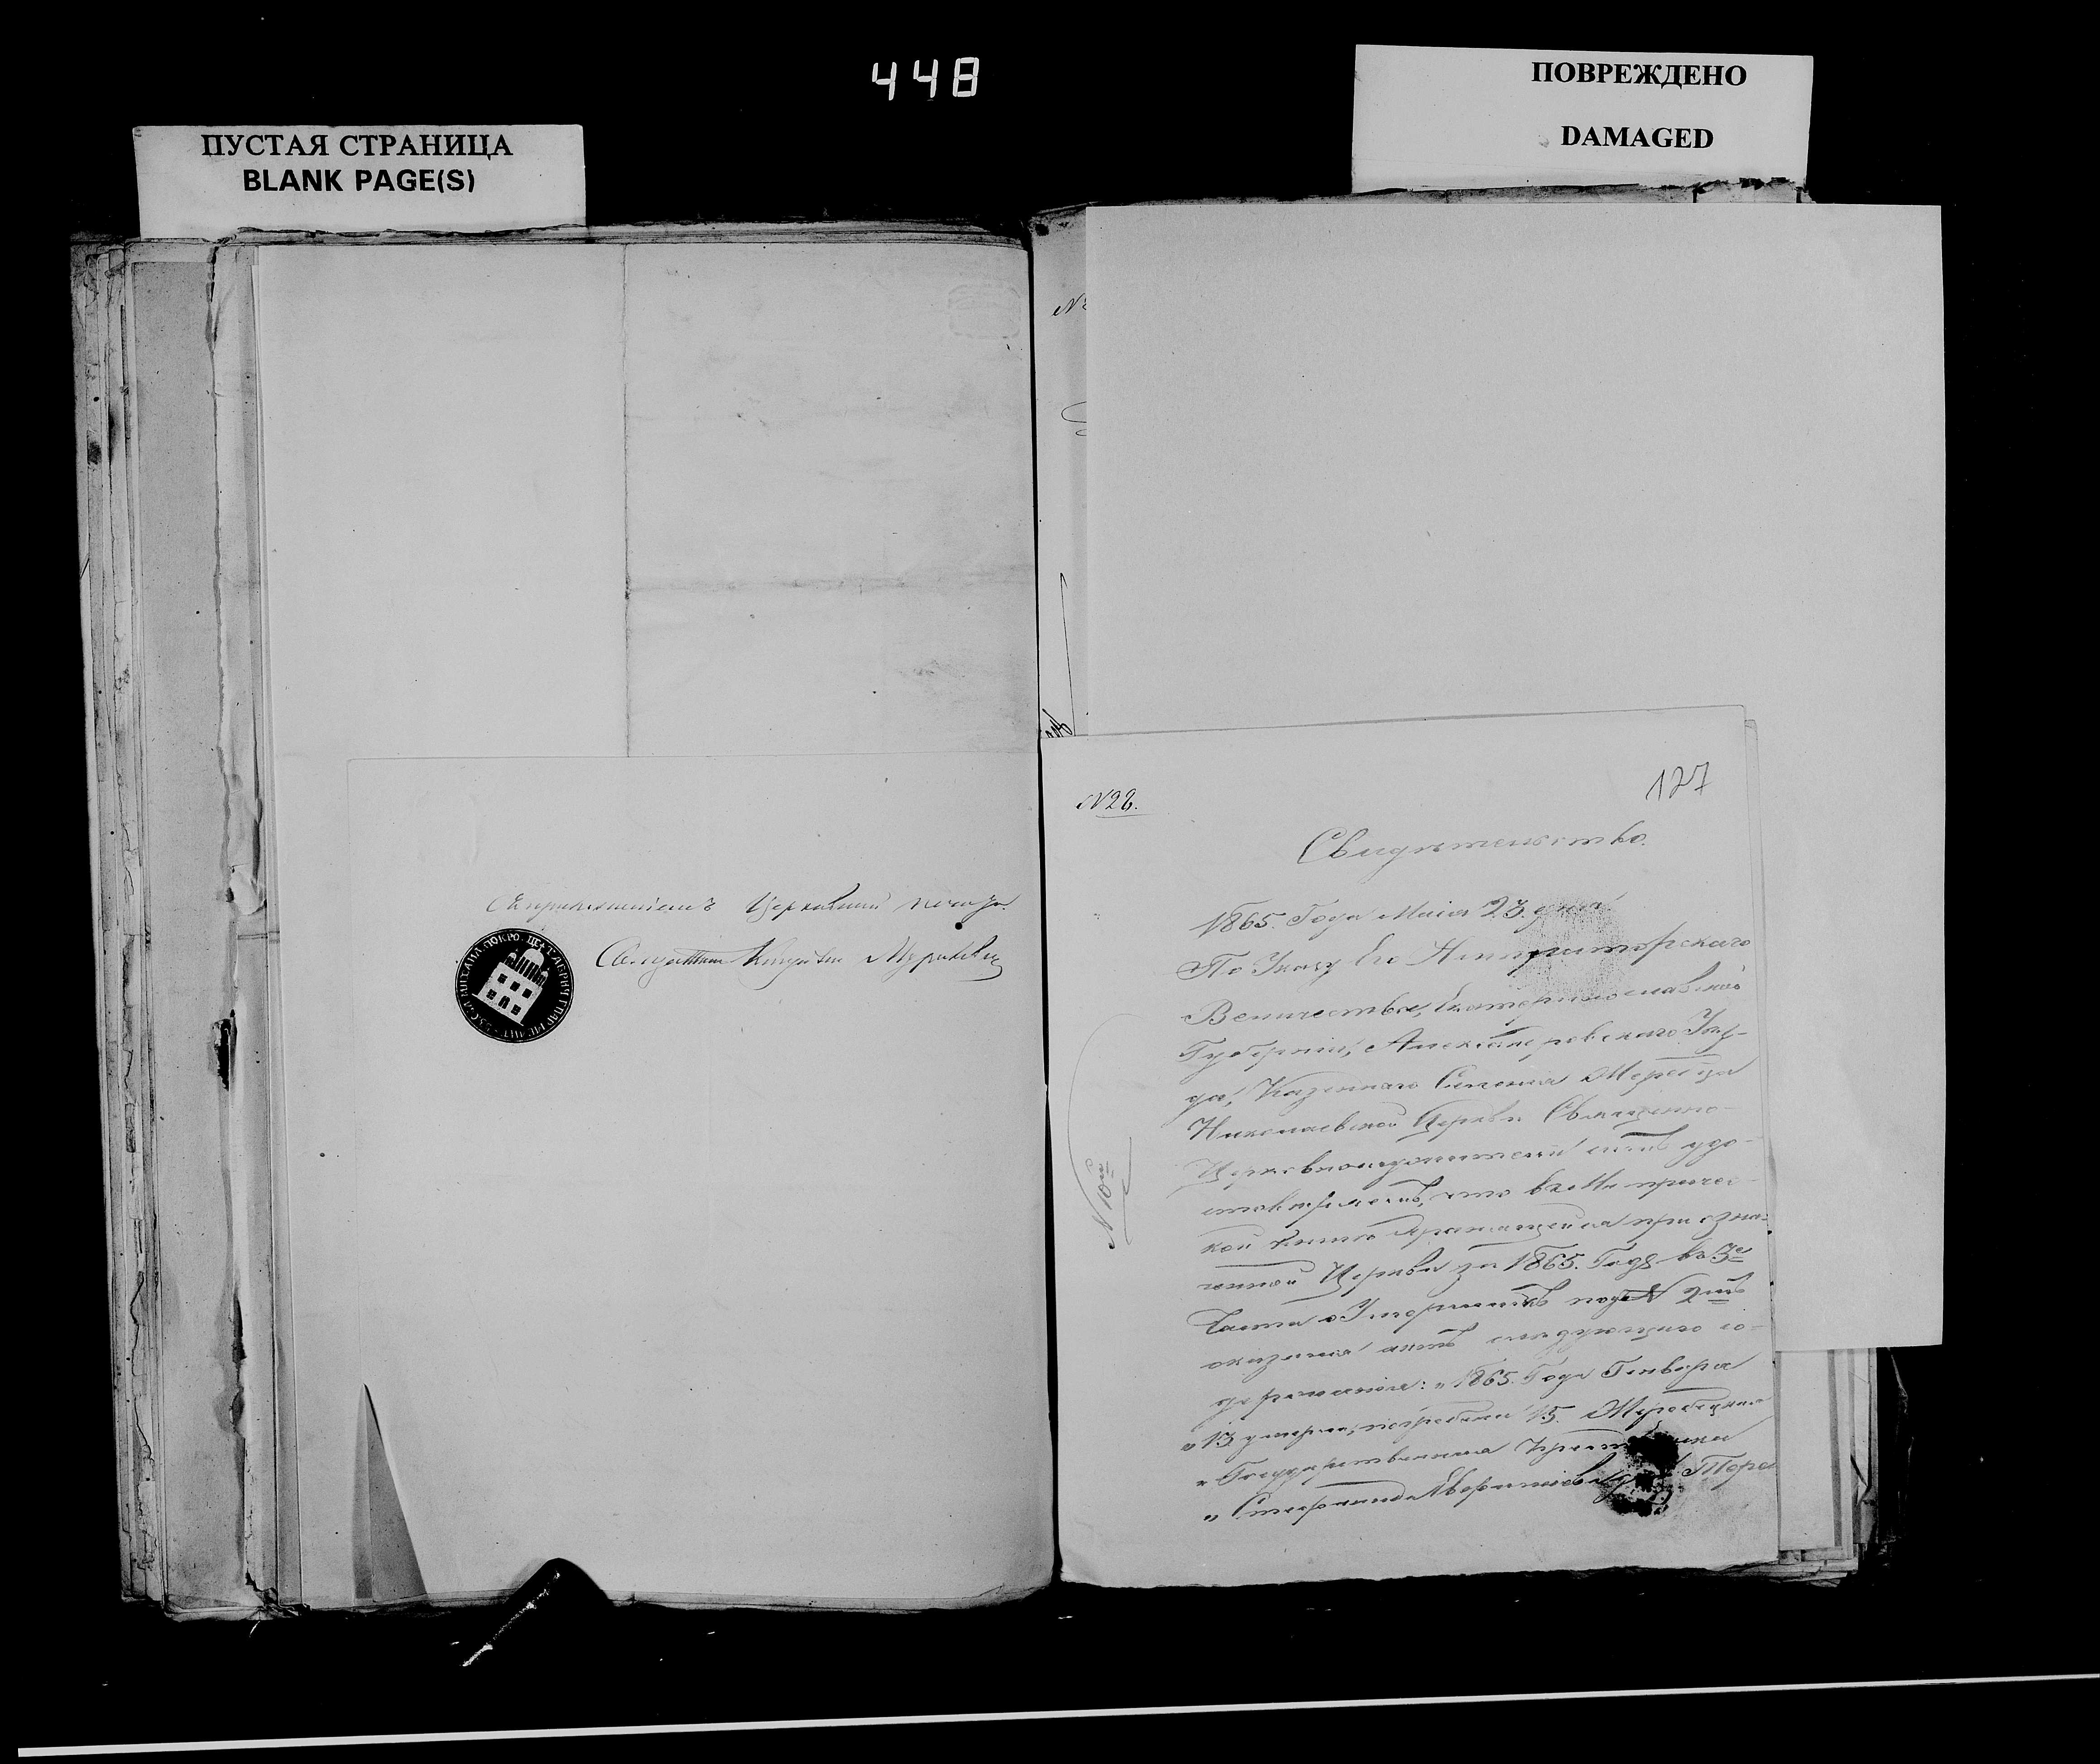 448
ПУСТАЯ СТРАНИЦА
BLANK PAGE(S)
ПОВРЕЖДЕНО
DAMAGED
Съ приложеніемъ Церковной печати.
Священникъ
№ 28.
127
Свидѣтельство.
1865. Года Маія 23. дня.
По Указу Его Императорскаго
Величества, Екатеринославской
Губерніи, Александровскаго Уѣз-
да, Казеннаго Селенія Жеребца
Николаевской Церкви Священно-
Церковнослужители симъ удо-
стовѣряемъ, что въ Метричес-
кой книгѣ хранящейся при озна-
ченной Церкви за 1865. Годъ въ 3й
Части о Умершихъ подъ № 2мъ
оказался актъ слѣдующаго со-
держанія: "1865. Года Генваря
"13 умерла, погребена 15. Жеребецкаго
"Государственнаго
"Стефанида